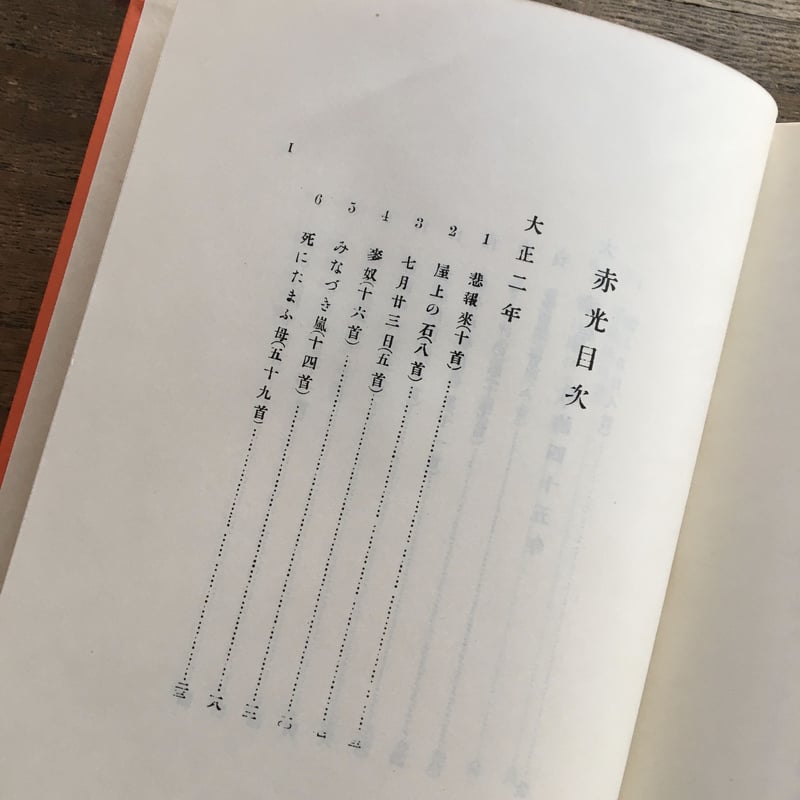 赤光目次
大正二年
1 悲報來(十首)
2 屋上の石(八首)
3 七月廿三日(五首)
4 麥奴(十六首)
5 みなづき嵐(十四首)
6 死にたまふ母(五十九首)
I